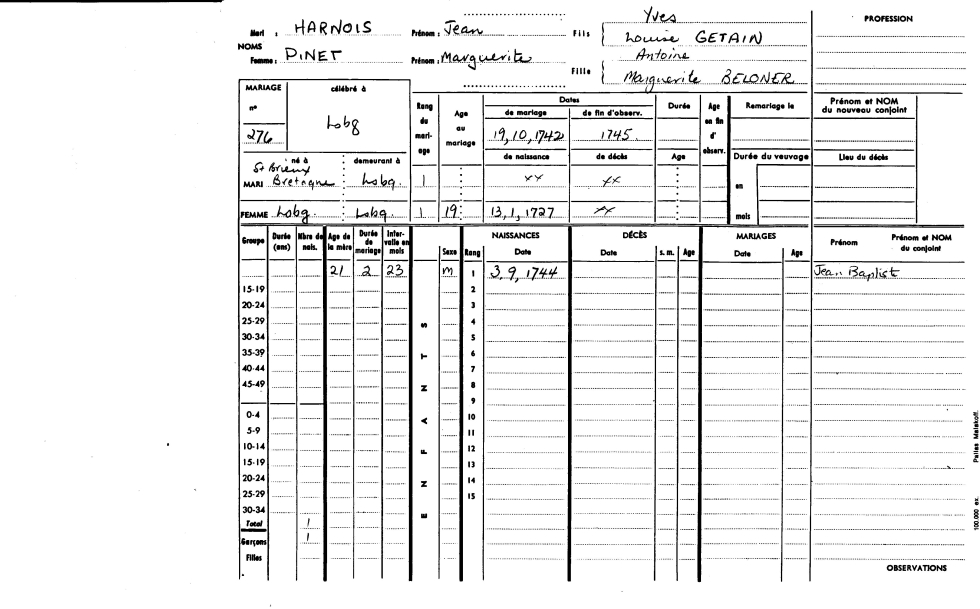 Mari : HARNOIS Prénom : Jean Fils { Yves
Louise GETAIN
NOMS
Femme : PINET Prénom : Marguerite Fille { Antoine
Marguerite BELONER
PROFESSION
MARIAGE célébré à
n° 276 Lobg
Rang du mariage Age au mariage Dates Durée Age en fin d'observ. Remariage le Prénom et NOM du nouveau conjoint
de mariage de fin d'observ.
19, 10, 1742 1745.
né à demeurant à de naissance de décès Age Durée du veuvage Lieu du décès
MARI St Brieux Bretagne Lobg. 1 xx xx en
FEMME Lobg. Lobg. 1 19 13, 1, 1727 xx mois
Groupe Durée (ans) Nbre de nais. Age de la mère Durée de mariage Intervalle en mois ENFANTS Sexe Rang NAISSANCES Date DÉCÈS Date s. m. Age MARIAGES Date Age Prénom Prénom et NOM du conjoint
21 2 23 M 1 3, 9, 1744 Jean Baptist
15-19 2
20-24 3
25-29 4
30-34 5
35-39 6
40-44 7
45-49 8
9
0-4 10
5-9 11
10-14 12
15-19 13
20-24 14
25-29 15
30-34
Total 1
Garçons 1
Filles
OBSERVATIONS
100.000 ex. Patins Malakoff.